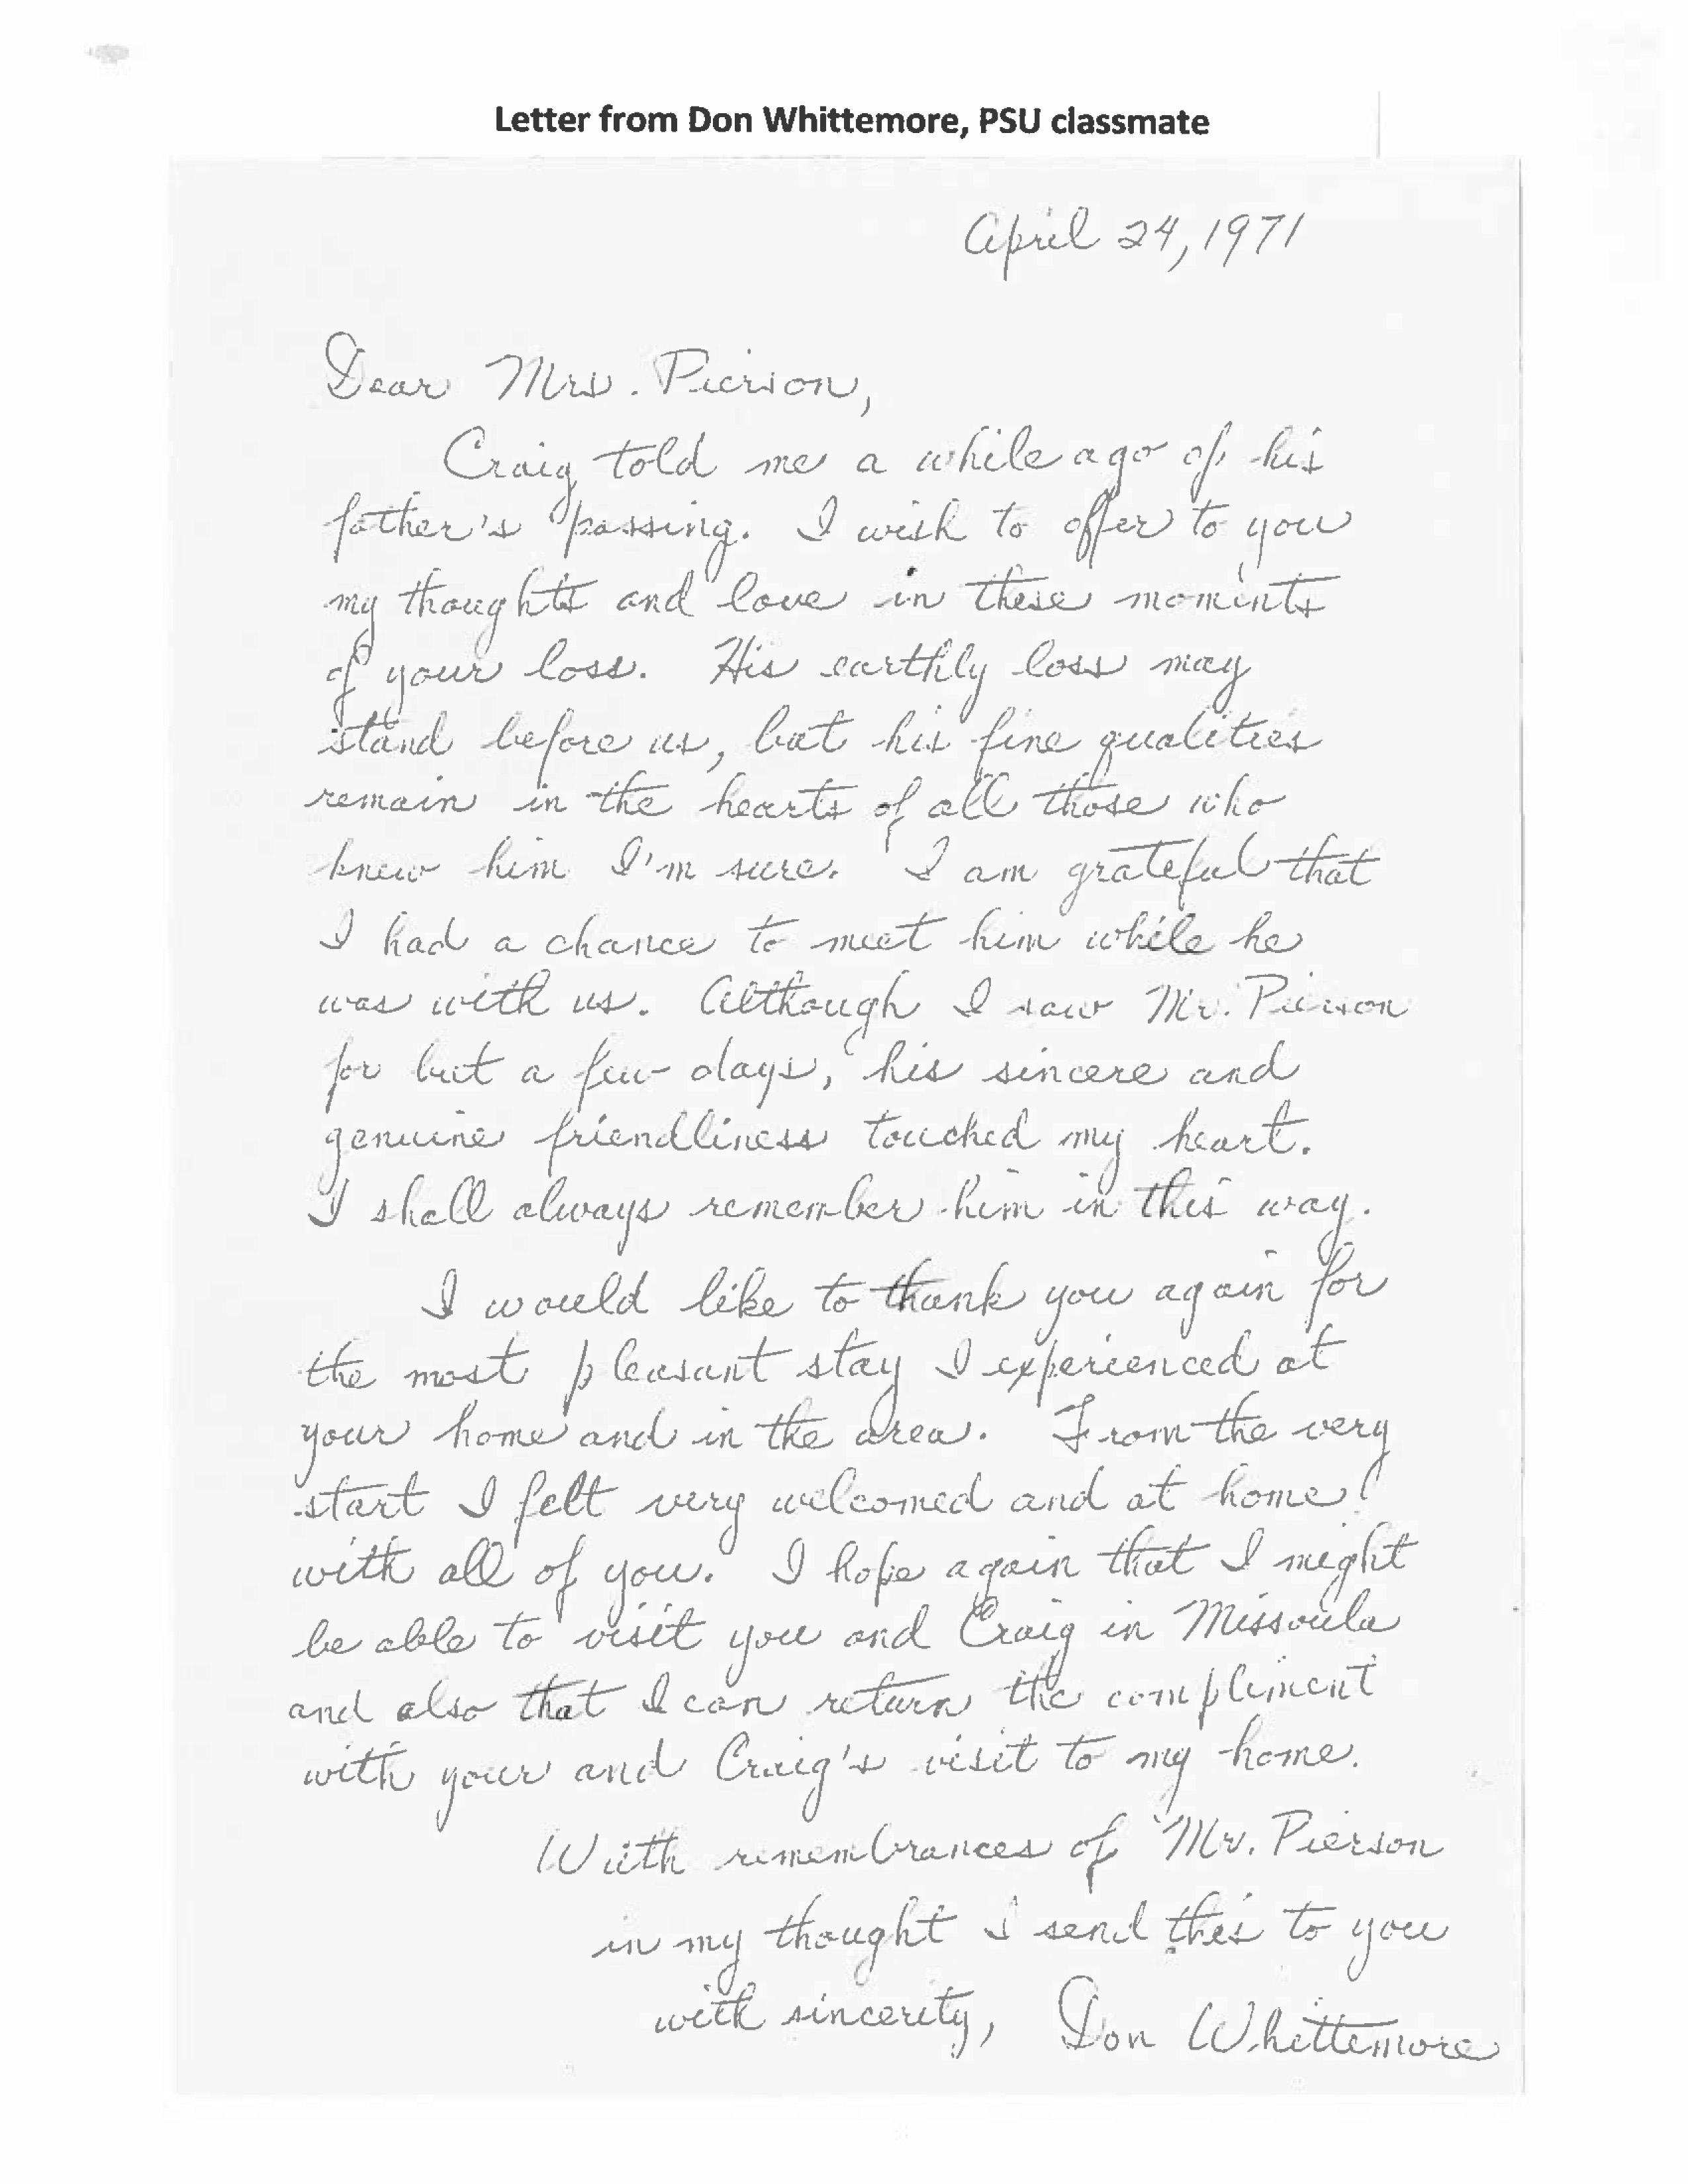 Letter from Don Whittemore, PSU classmate
April 24, 1971
Dear Mrs. Pierson,
Craig told me a while ago of his
father's passing. I wish to offer to you
my thoughts and love in these moments
of your loss. His earthly loss may
stand before us, but his fine qualities
remain in the hearts of all those who
knew him I'm sure. I am grateful that
I had a chance to meet him while he
was with us. Although I saw Mr. Pierson
for but a few days, his sincere and
genuine friendliness touched my heart.
I shall always remember him in this way.
I would like to thank you again for
the most pleasant stay I experienced at
your home and in the area. From the very
start I felt very welcomed and at home
with all of you. I hope again that I might
be able to visit you and Craig in Missoula
and also that I can return the compliment
with your and Craig's visit to my home.
With remembrances of Mr. Pierson
in my thought I send this to you
with sincerity, Don Whittemore